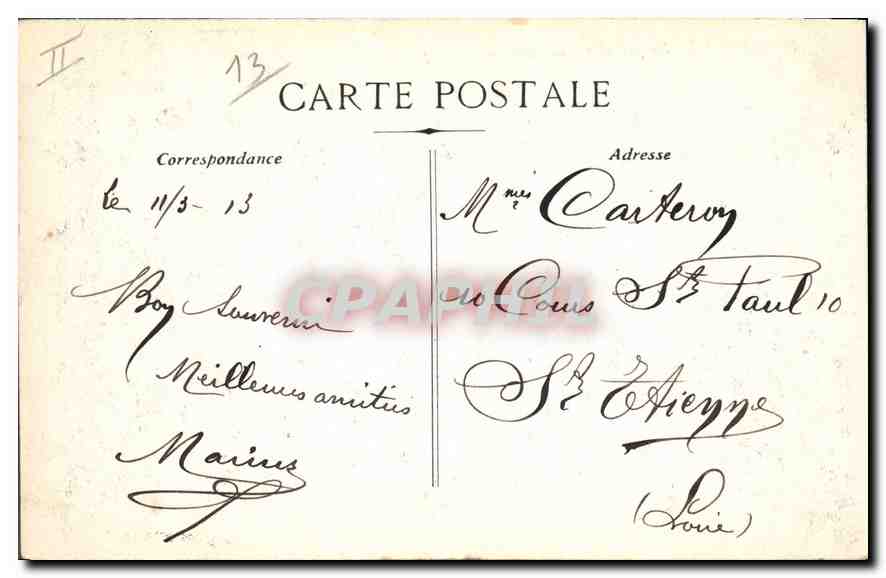 II
13
CARTE POSTALE
Correspondance
Le 11/3-13
Bon Souvenir
Meilleures amitiés
Marius
Adresse
Mmes Carteron
10 Cours St Paul 10
St Etienne
(Loire)
CPAPHIL